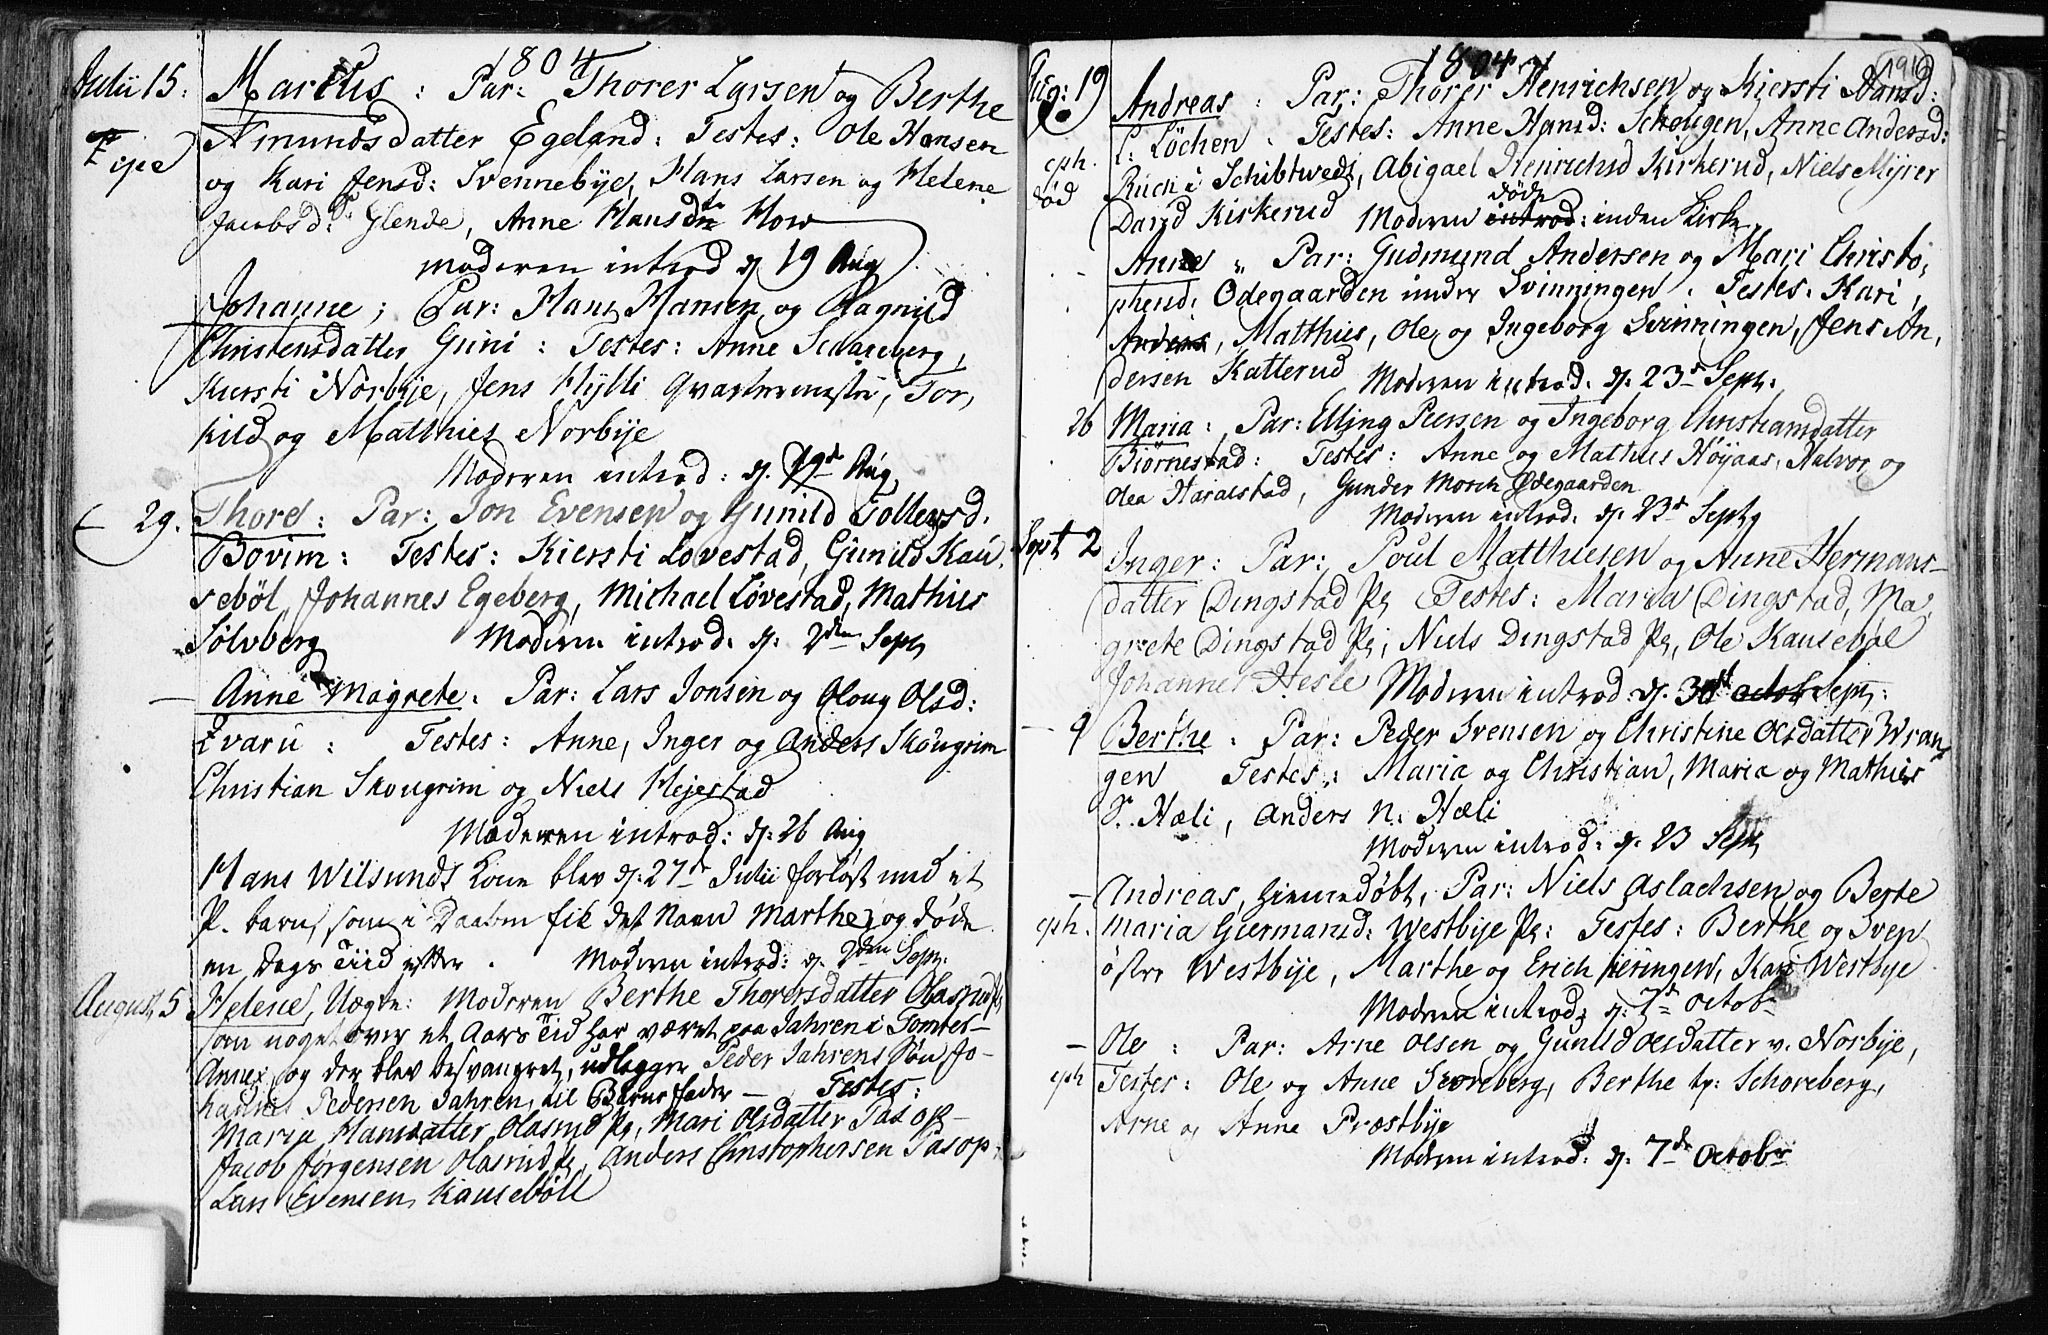 1804
Julii 15. Marcus: Par: Thorer Larsen og Berthe
Amundsdatter Egeland: Testes: Ole Hansen
og Kari Jensd: Svennebye, Hans Larsen og Helene
Jacobsd: Glende, Anne Hansd How
Moderen introd d. 19 Aug
Johanne; Par: Hans Hansen og Ragnild
Christensdatter Guni: Testes: Anne
Kiersti Norbye, Jens Hylli Qvarteermester, Tor,
kild og Matthies Norbye
Moderen introd: d. 19de Aug
29. Thore: Par: Jon Evensen og Gunild Tollevsd.
Bovim: Testes: Kiersti Lovestad, Gunild Kau,
sebøl, Johannes Egeberg, Michael Løvestad, Mathies
Sølvberg Moderen introd: d. 2den Sept
Anne Magrete: Par: Lars Jonsen og Oloug Olsd:
Testes: Anne, Inger og Anders Skougrim
Christian Skougrim og Niels Hejestad
Moderen introd: d: 26 Aug
Hans Wilsunds Kone blev d: 27de Julii forløst med et
P. barn, som i Daaben fik det Navn Marthe, og døde
en Dags Tiid efter. Moderen introd: d. 2den Sept.
August 5 Helene, Uægte: Moderen Berthe Thorersdatter Olasrud
som noget over et Aars Tid har været paa Jahren i Tomter-
Annex og der blev besvangret, udlegger Peder Jahrens Søn Jo-
hannes Pedersen Jahren, til Barne fader - Testes:
Maria Hansdatter Olasrud Pg, Mari Olsdatter Tasop-
Jacob Jørgensen Olasrud, Anders Christophersen Tasop:
Lars Evensen Kausebøll
1804
Aug: 19 Andreas: Par: Thorer Henrichsen og Kiersti Hansd:
eph. L: Løchen: Testes: Anne Hansd: Schougen, Anne Andersd:
død Ruch i Schibtwedt, Abigael Henrichsd Kirkerud, Niels Myrer
David Kirkerud Moderen introd: døde inden Kirke
Anne " Par: Gudmund Andersen og Mari Christo,
phersd: Ødegaarden under Svinningen. Testes. Kari,
Anders, Matthies, Ole, og Ingeborg Svinningen, Jens An,
dersen Katterud Moderen introd: d. 23de Sept.
26 Maria: Par: Elling Peersen og Ingeborg Christiansdatter
Biørnestad: Testes: Anne og Mathies Høyaas, Halvor og
Olea Haraldstad, Gunder Mosen Ødegaarden
Moderen introd: d. 23de Sept
Sept 2 Inger: Par: Poul Matthiesen og Anne Hermans-
datter Dingstad Pg Testes: Maria Dingstad, Ma,
grete Dingstad Pg, Niels Dingstad Pg, Ole Kausebøl
Johannes Hesle Moderen introd d. 30 octob Sept:
9 Berthe: Par: Peder Svensen og Christine Olsdatter Wran
gen Testes: Maria og Christian, Maria og Mathies
S. Hæli, Anders N: Hæli
Moderen introd: d. 23 Sept
Andreas, hiemmedøbt, Par: Niels Aslachsen og Berte
eph. Maria Giermansd: Westbye Pg: Testes: Berthe og Sven
østre Westbye, Marthe og Erich Kieringen, Kari Westbye
Moderen introd: d: 7de octobr
Ole: Par: Arne Olsen og Gunild Olsdatter v. Norbye,
eph Testes: Ole og Anne Scoreberg, Berthe Schoreberg,
Arne og Anne Præstbye
Moderen introd: d. 7de Octobr